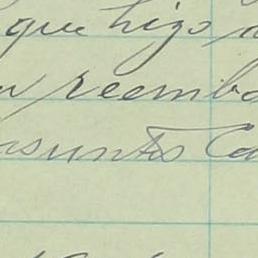 que hizo
reemb
asunto Ca